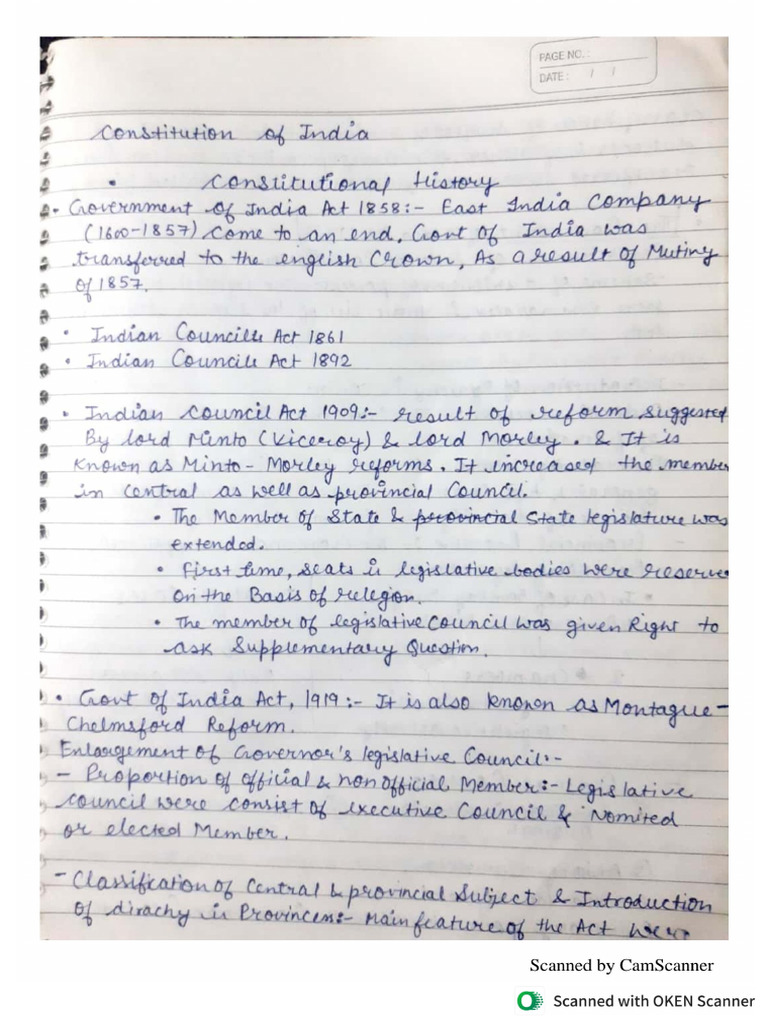 PAGE NO.:
DATE: / /
Constitution of India
• Constitutional History
• Government of India Act 1858:- East India Company
(1600-1857) Come to an end, Govt of India was
transferred to the english Crown, As a result of Mutiny
of 1857.
• Indian Councils Act 1861
• Indian Councils Act 1892
• Indian Council Act 1909:- result of reform suggested
By lord Minto (Viceroy) & lord Morley. & It is
Known as Minto-Morley reforms. It increased the member
in central as well as provincial Council.
• The Member of State & provincial State legislature was
extended.
• First time, seats in legislative bodies were reserve
on the Basis of relegion.
• The member of legislative Council was given Right to
ask Supplementary Question.
• Govt of India Act, 1919:- It is also known as Montague-
Chelmsford Reform.
Enlargement of Governor's legislative Council:-
- Proportion of official & non official Member:- Legislative
council were consist of executive Council & Nomited
or elected Member.
- Classification of Central & provincial Subject & Introduction
of dirachy in Provinces:- Main feature of the Act were
Scanned by CamScanner
Scanned with OKEN Scanner